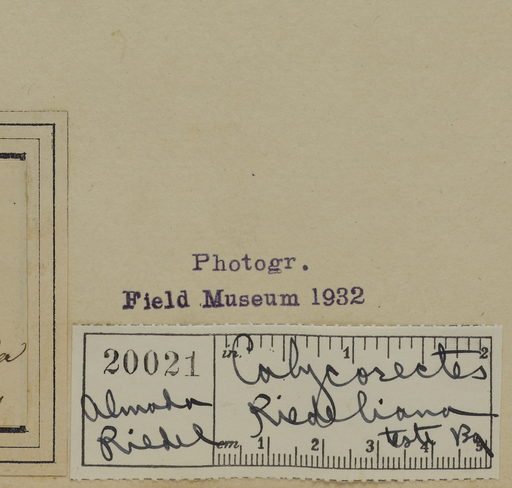 Photogr.
Field Museum 1932
20021
Almada
Riedel
in. 1 2
Calycorectes
Riedeliana
teste Bg
cm 1 2 3 4 5